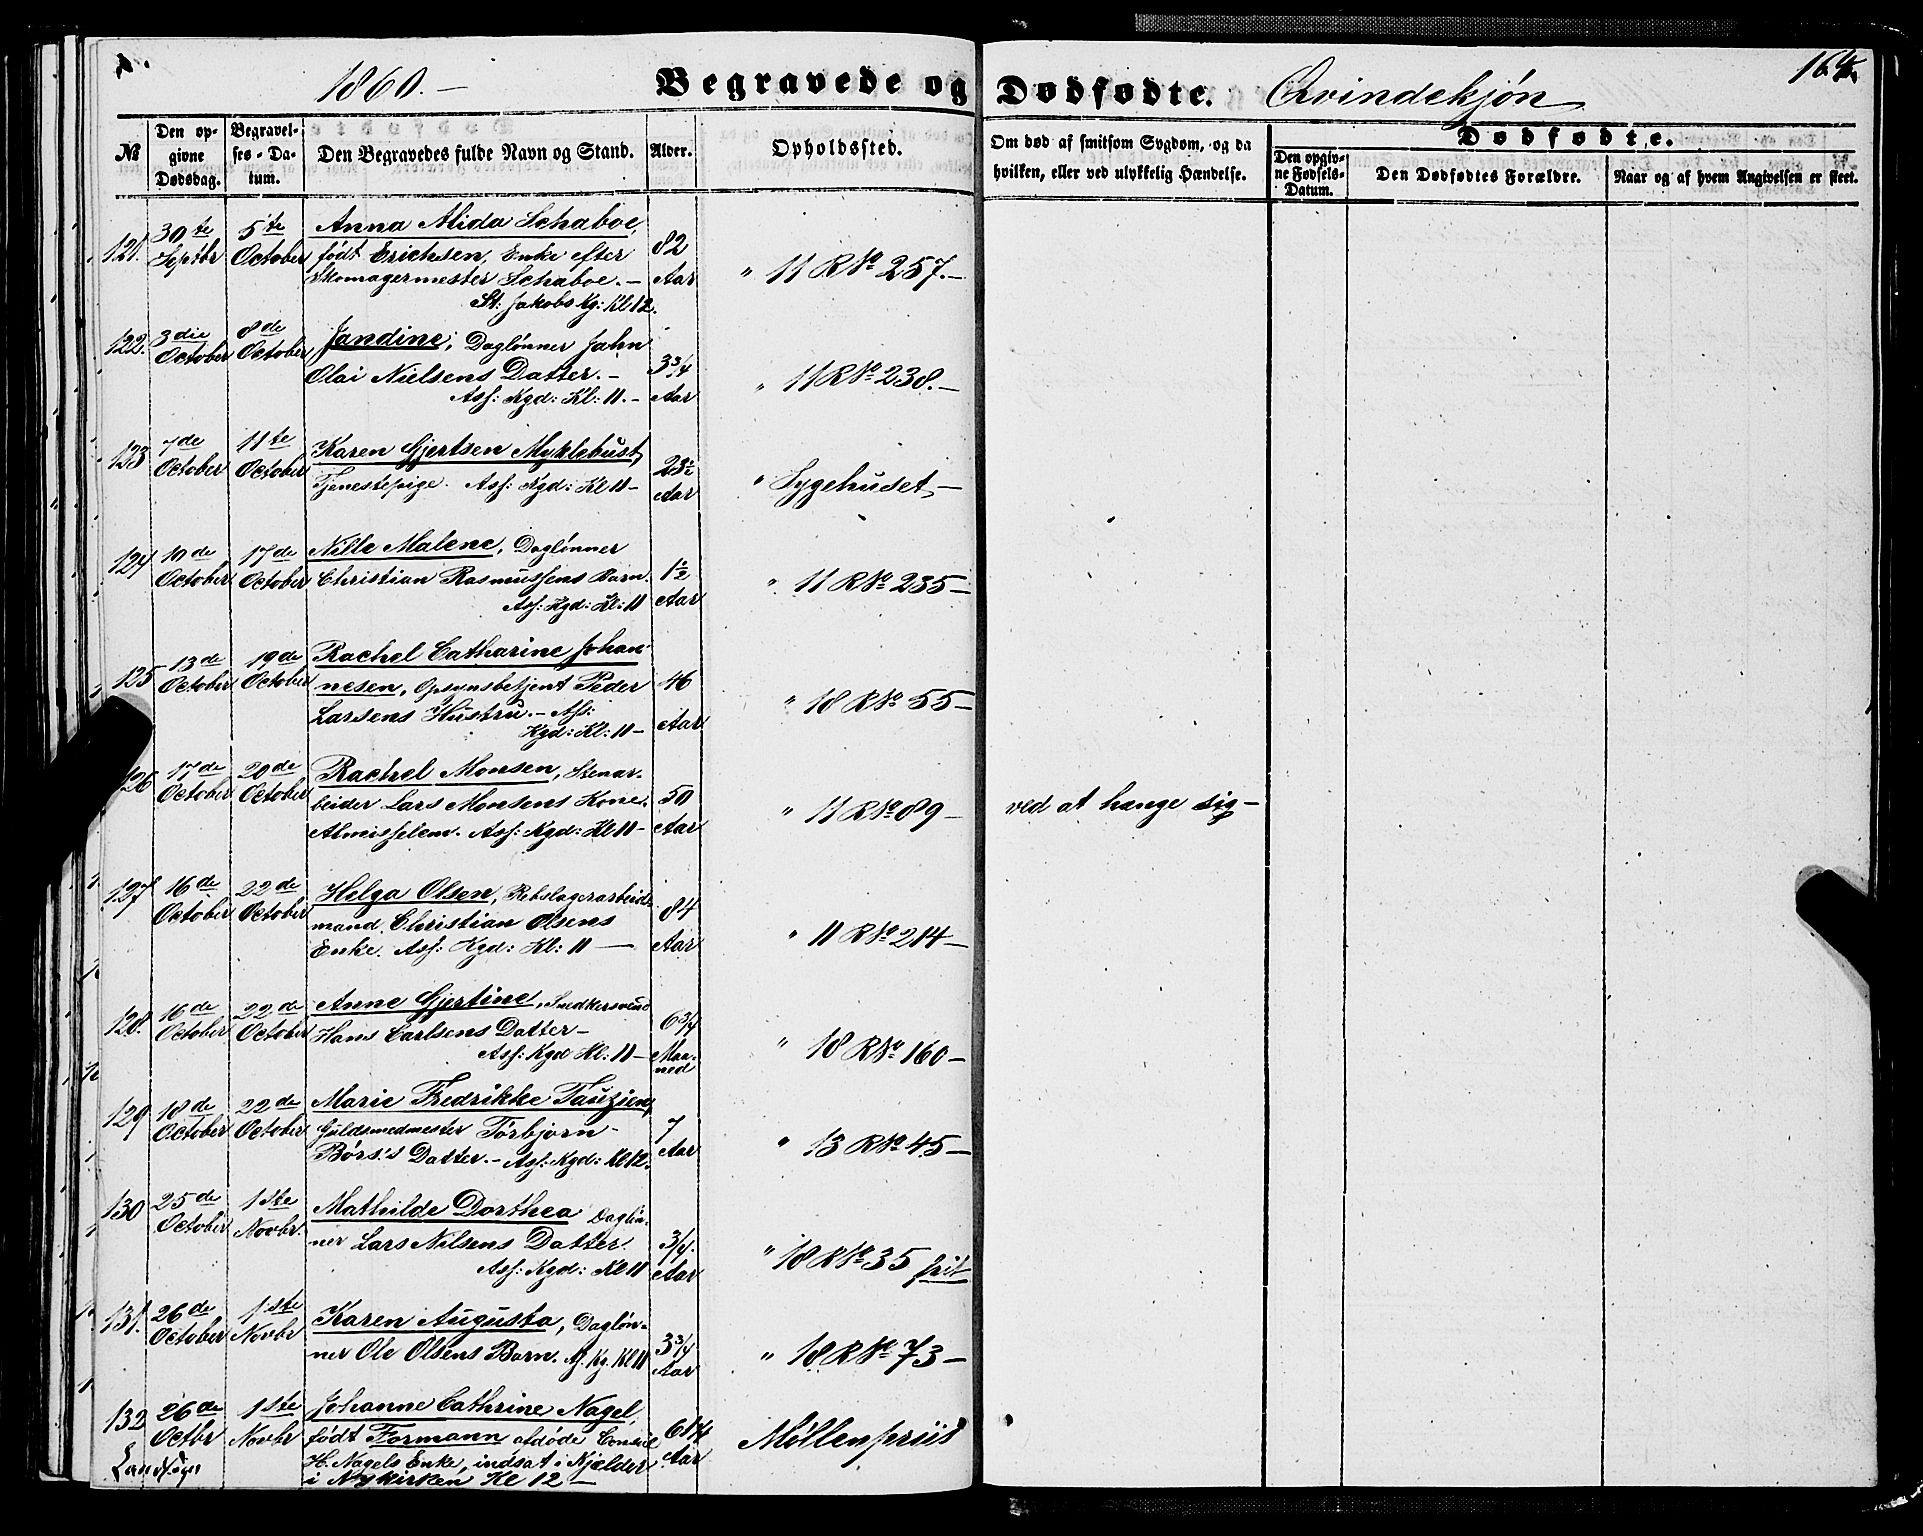 1860.— Begravede og Dødfødte. Qvindekjøn 164
№ Den opgivne Dødsdag. Begravelses-Datum. Den Begravedes fulde Navn og Stand. Alder. Opholdssted. Om død af smitsom Sygdom, og da hvilken, eller ved ulykkelig Hændelse. Dødfødte.
Den opgivne Fødsels-Datum. Den Dødfødtes Forældre. Naar og af hvem Angivelsen er skeet.
121. 30te Septbr 5te October Anna Alida Schaboe,
født Erichsen, Enke efter 82
Skomagermester Schaboe.— Aar " 11 R № 257.—
St: Jakobs Kg: Kl 12.
122. 3die October 8de October Jandine, Daglønner Jahn
Olai Nielsens Datter.— 3 3/4
Asf: Kgd: Kl: 11.— Aar " 11 R № 238.—
123 7de October 11te October Karen Gjertsen Myklebust, 23½
Tjenestepige. Asf: Kgd: Kl 11— Aar " Sygehuset,—
124 10de October 17de October Nille Malene, Daglønner
Christian Rasmussens Barn. 1½
Asf: Kgd: Kl: 11 Aar " 11 R № 235—
125 13de October 19de October Rachel Catharine Johan-
nesen, Opsynsbetjent Peder 46
Larsens Hustru.— Asf: Aar " 18 R № 55—
Kgd: Kl: 11—
126 17de October 20de October Rachel Monsen, Stenar-
beider Lars Monsens Kone. 50
Almisselem. Asf: Kgd: Kl 11— Aar " 11 R № 89— ved at hænge sig—
127 16de October 22de October Helga Olsen, Rebslagerarbeids-
mand Christian Olsens 84
Enke. Asf: Kgd: Kl: 11— Aar " 11 R № 214—
128. 16de October 22de October Anne Gjertine, Snedkersvend
Hans Carlsens Datter— 6 3/4
Asf: Kgd Kl: 11— Maa-
ned " 18 R № 160—
129 18de October 22de October Marie Fredrikke Tauzien,
Guldsmedmester Torbjørn 7
Børs's Datter.— Asf: Kgd: Kl 12. Aar " 13 R № 45—
130 25de October 1ste Novbr. Mathilde Dorthea Dagløn-
ner Lars Nilsens Datter. 3/4.
Asf: Kgd: Kl 11 Aar " 18 R № 35 frit
131. 26de October 1ste Novbr Karen Augusta, Dagløn-
ner Ole Olsens Barn. Af. Kg. Kl 11 3 3/4 Aar " 18 R № 73—
132 26de Octbr 1ste Novbr Johanne Cathrine Nagel,
født Formann afdøde Consul 68 1/4
H. Nagels Enke, indsat i Kjælder Aar Møllenpriis
i Nykirken Kl 12—